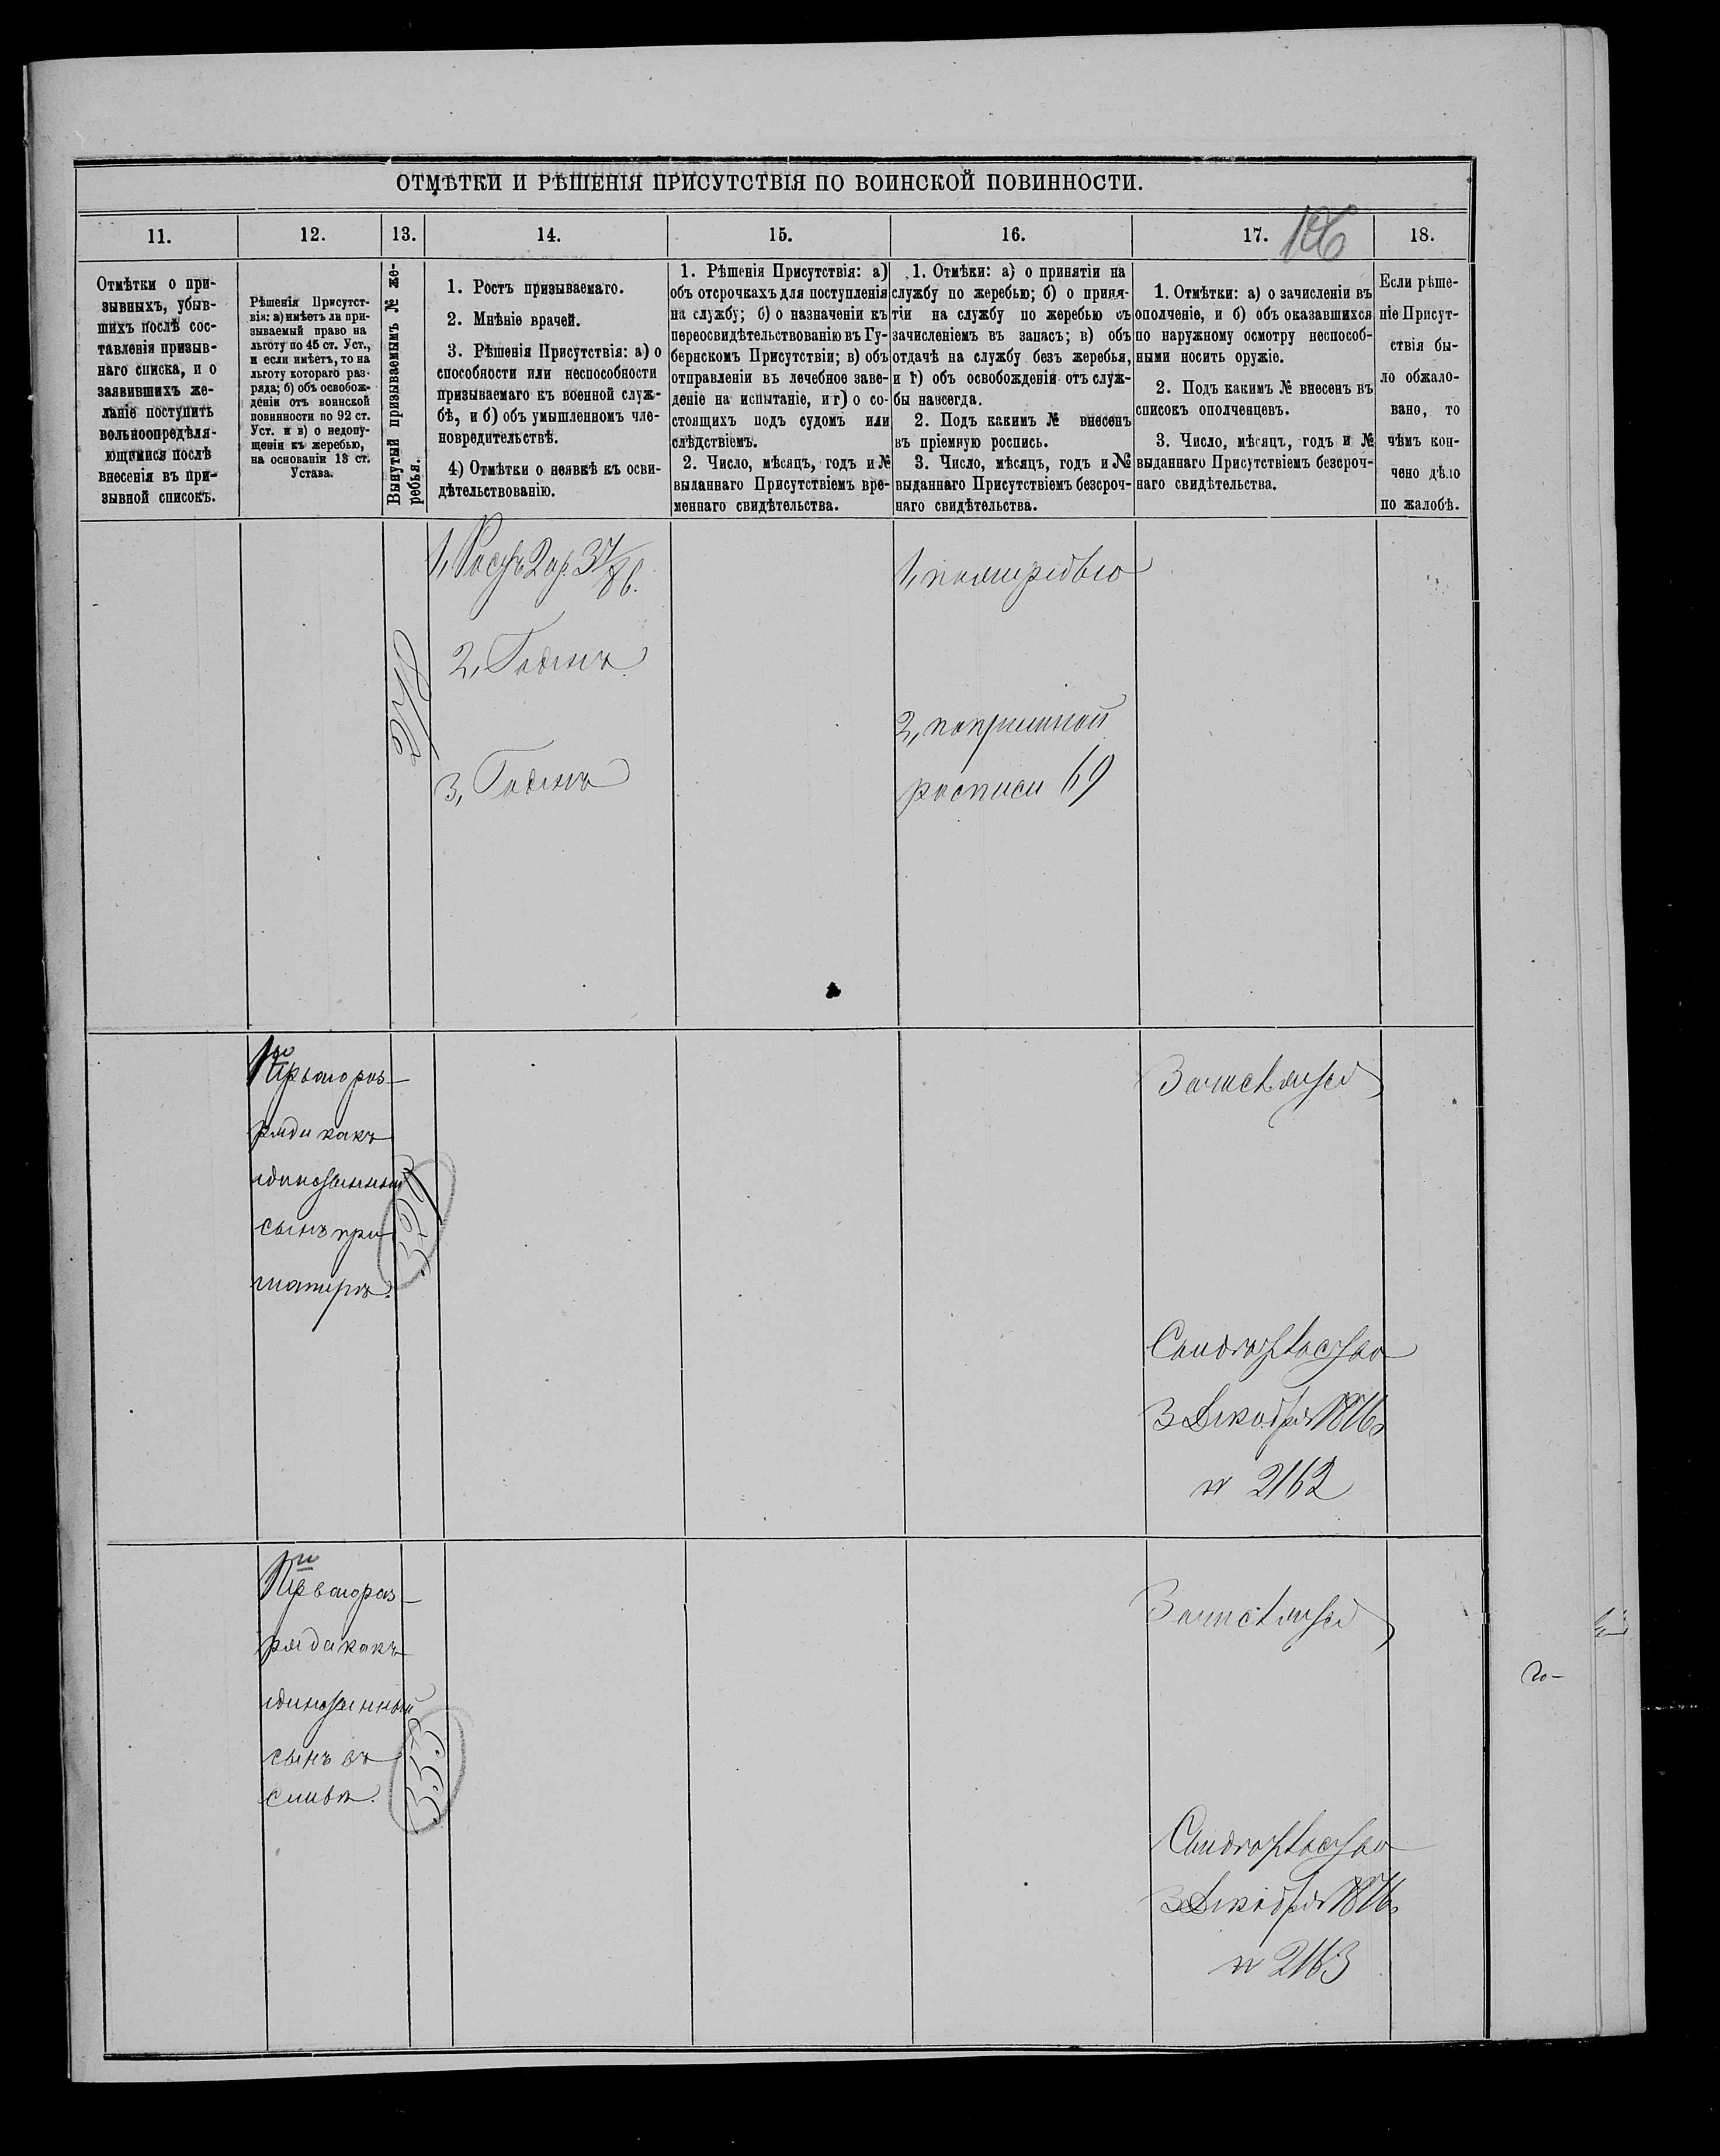 ОТМѢТКИ И РѢШЕНІЯ ПРИСУТСТВІЯ ПО ВОИНСКОЙ ПОВИННОСТИ.
11.
12.
13.
14.
15.
16.
17.
18.
Отмѣтки о при-
зывныхъ, убыв-
шихъ послѣ сос-
тавленія призыв-
наго списка, и о
заявившихъ же-
ланіе поступить
вольноопредѣля-
ющимися послѣ
внесенія въ при-
зывной списокъ.
Рѣшенія Присутст-
вія: а) имѣетъ ли при-
зываемый право на
льготу по 45 ст. Уст.,
и если имѣетъ, то на
льготу котораго раз-
ряда; б) объ освобож-
деніи отъ воинской
повинности по 92 ст.
Уст. и в) о недопу-
щеніи къ жеребью,
на основаніи 13 ст.
Устава.
Вынутый призываемымъ № же-
ребья.
1. Ростъ призываемаго.
2. Мнѣніе врачей.
3. Рѣшенія Присутствія: а) о
способности или неспособности
призываемаго къ военной служ-
бѣ, и б) объ умышленномъ чле-
новредительствѣ.
4) Отмѣтки о неявкѣ къ осви-
дѣтельствованію.
1. Рѣшенія Присутствія: а)
объ отсрочкахъ для поступленія
на службу; б) о назначеніи къ
переосвидѣтельствованію въ Гу-
бернскомъ Присутствіи; в) объ
отправленіи въ лечебное заве-
деніе на испытаніе, и г) о со-
стоящихъ подъ судомъ или
слѣдствіемъ.
2. Число, мѣсяцъ, годъ и №
выданнаго Присутствіемъ вре-
меннаго свидѣтельства.
1. Отмѣки: а) о принятіи на
службу по жеребью; б) о приня-
тіи на службу по жеребью съ
зачисленіемъ въ запасъ; в) объ
отдачѣ на службу безъ жеребья,
и г) объ освобожденіи отъ служ-
бы навсегда.
2. Подъ какимъ № внесенъ
въ пріемную роспись.
3. Число, мѣсяцъ, годъ и №
выданнаго Присутствіемъ безсроч-
наго свидѣтельства.
1. Отмѣтки: а) о зачисленіи въ
ополченіе, и б) объ оказавшихся
по наружному осмотру неспособ-
ными носить оружіе.
2. Подъ какимъ № внесенъ въ
списокъ ополченцевъ.
3. Число, мѣсяцъ, годъ и №
выданнаго Присутствіемъ безсроч-
наго свидѣтельства.
Если рѣше-
ніе Присут-
ствія бы-
ло обжало-
вано, то
чѣмъ кон-
чено дѣло
по жалобѣ.
1, Ростъ 2 ар. 3 7/8 в.
2, Годенъ
3, Годенъ
1, по жеребью
2, по приемной
росписи 69
Перваго раз-
ряда какъ
единственный
сынъ при
матерѣ.
Зачисляется
Свидѣтельство
3 Декабря 1876
№ 2162
Перваго раз-
ряда какъ
единственный
сынъ въ
семьѣ.
353
Зачисляется
Свидѣтельство
3 Декабря 1876
№ 2163